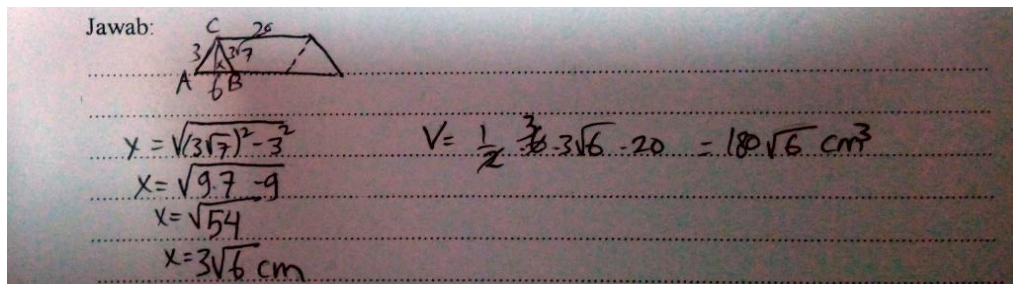 Jawab:
C 20
3 3√7
x
A 6 B
x = √(3√7)² - 3²
x = √9.7 - 9
x = √54
x = 3√6 cm
V = 1/2 . 6 3 . 3√6 . 20 = 180√6 cm³